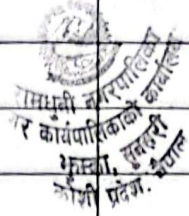 रामधुनी नगरपालिका
नगर कार्यपालिकाको कार्यालय
भुल्का, सुनसरी
कोशी प्रदेश, नेपाल